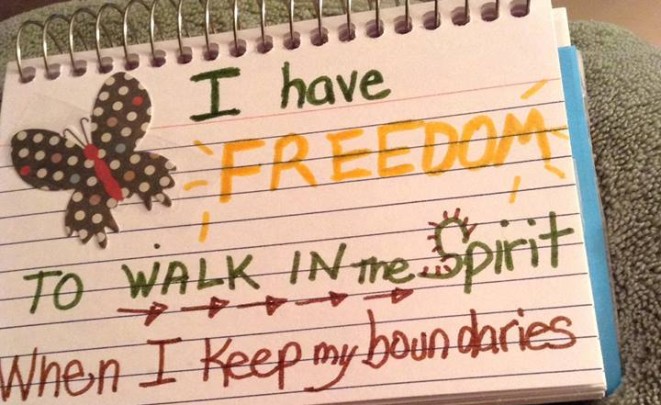 I have
FREEDOM
TO WALK IN the Spirit
When I Keep my boundaries